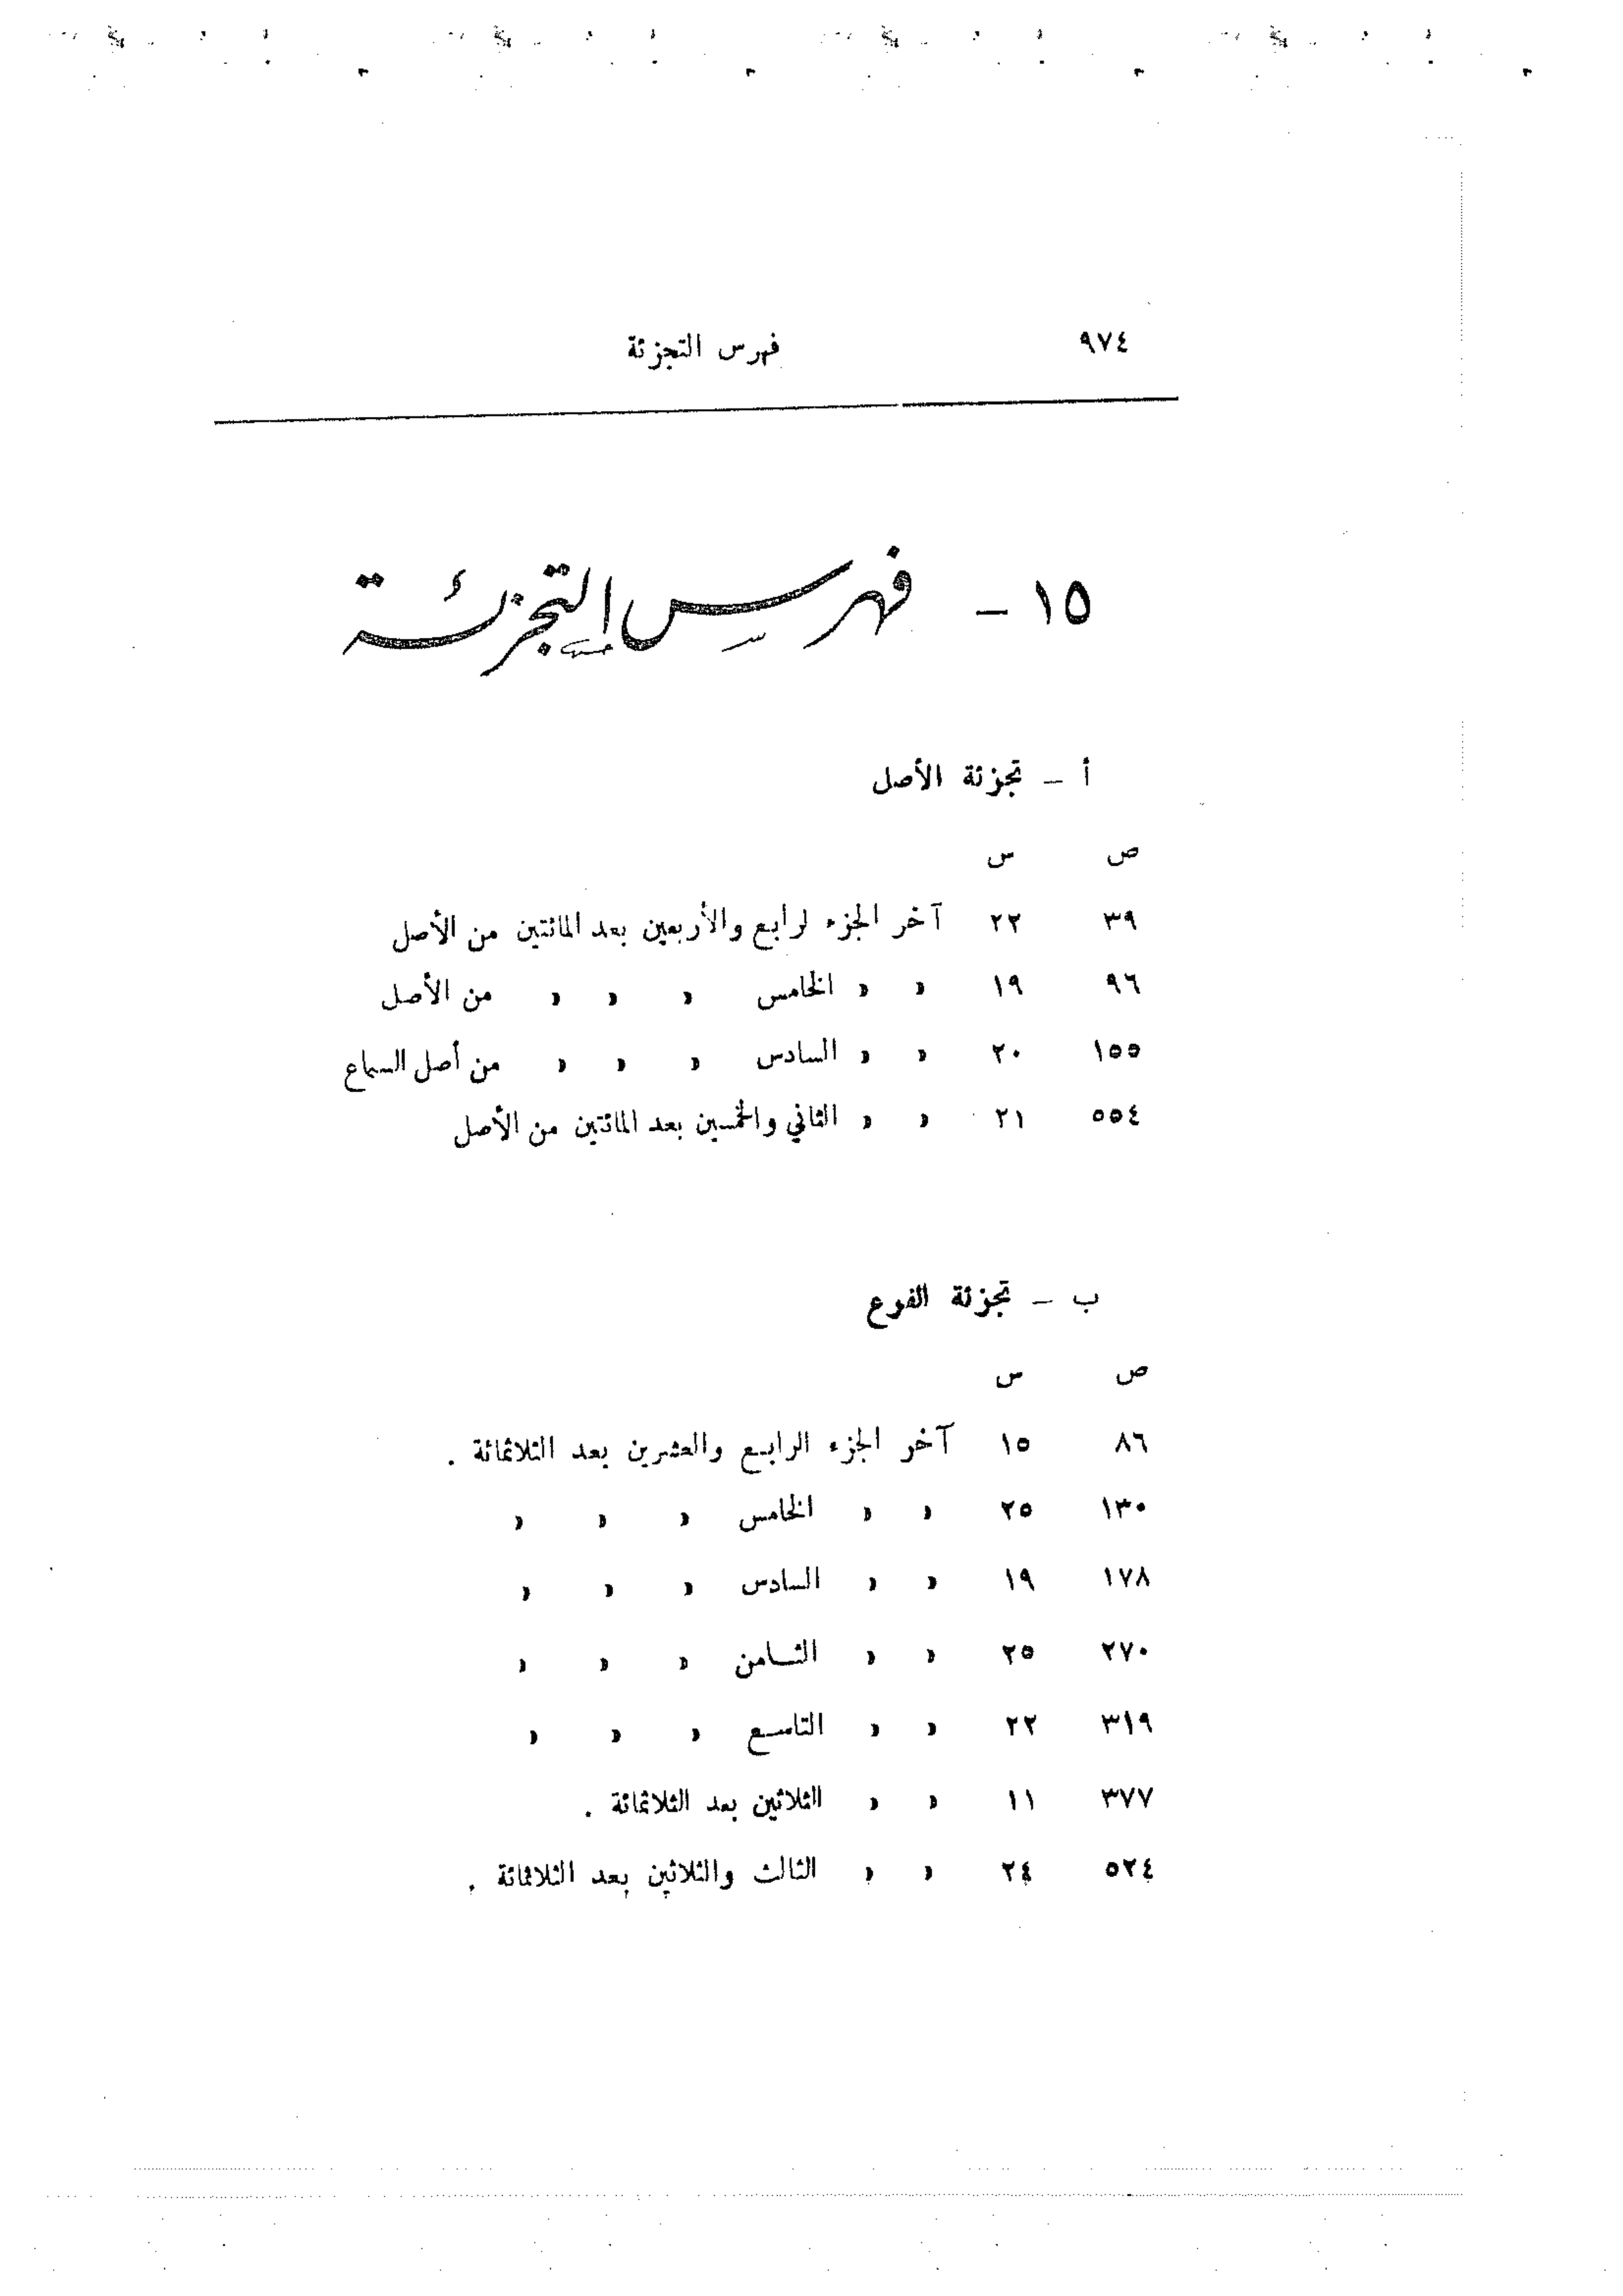 ٩٧٤ فهرس التجزئة
١٥ – فهرس التجزئة
أ – تجزئة الأصل
ص س
٣٩ ٢٢ آخر الجزء لرابع والأربعين بعد المائتين من الأصل
٩٦ ١٩ » » الخامس » » » من الأصل
١٥٥ ٢٠ » » السادس » » » من أصل السماع
٥٥٤ ٢١ » » الثاني والخمسين بعد المائتين من الأصل
ب – تجزئة الفرع
ص س
٨٦ ١٥ آخر الجزء الرابع والعشرين بعد الثلاثمائة .
١٣٠ ٢٥ » » الخامس » » »
١٧٨ ١٩ » » السادس » » »
٢٧٠ ٢٥ » » الثامن » » »
٣١٩ ٢٢ » » التاسع » » »
٣٧٧ ١١ » » الثلاثين بعد الثلاثمائة .
٥٢٤ ٢٤ » » الثالث والثلاثين بعد الثلاثمائة .